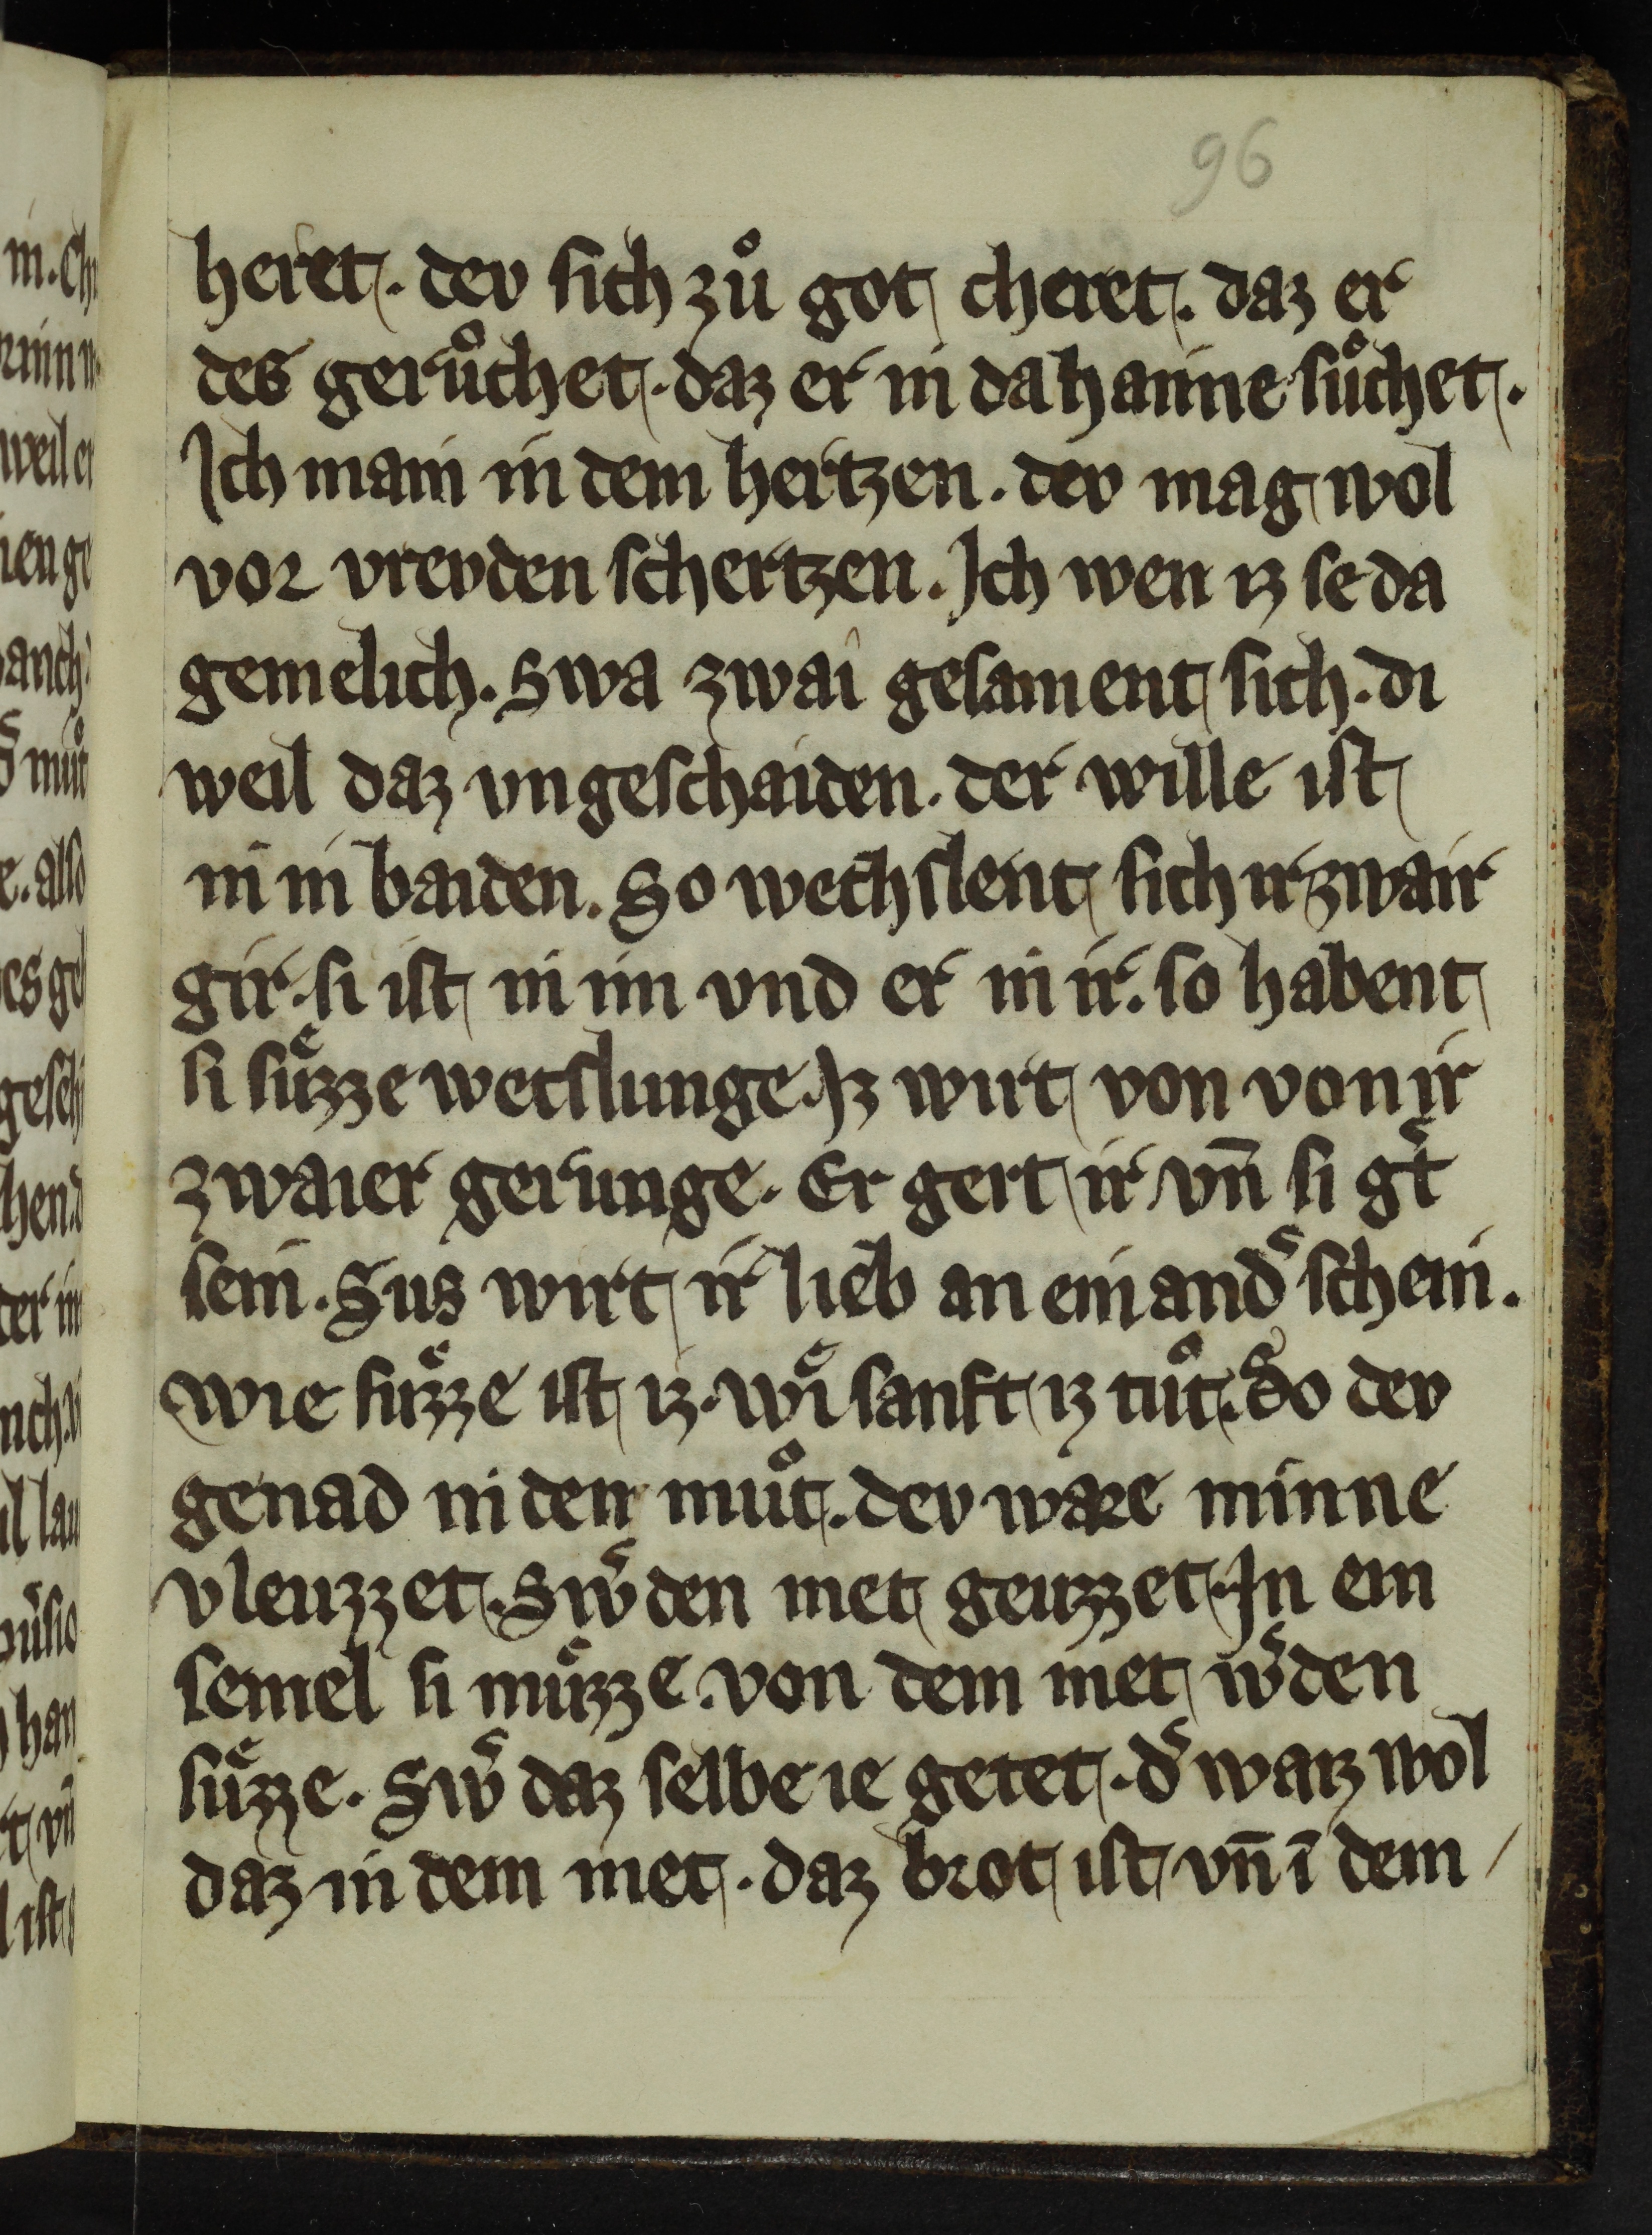 96
heret. dev sich zuͦ got cheret. daz er
des geruͦchet. daz er in da hainne suͦchet.
Ich main in dem hertzen. dev mag wol
vor vrevden schertzen. Ich wen iz se da
gemelich. Swa zwai gesament sich. di
weil daz vngeschaiden. der wille ist
in in baiden. So wechslent sich ir zwair
gir. si ist in im vnd er in ir. so habent
si suͤzze wecslunge. Iz wirt von von ir
zwaier gerunge. Er gert ir vn̄ si g͛t
sein. Sus wirt ir lieb an einand͛ schein.
wie suͤzze ist iz. wi sanft iz tuͦt. So dev
genad in den muͦt. dev ware minne
vleuzzet. Sw͛ den met geuzzet. In ein
semel si muͤzze. von dem met w͛den
suͤzze. Sw͛ daz selbe ie getet. d͛ waiz wol
daz in dem met. daz brot ist vn̄ ī dem